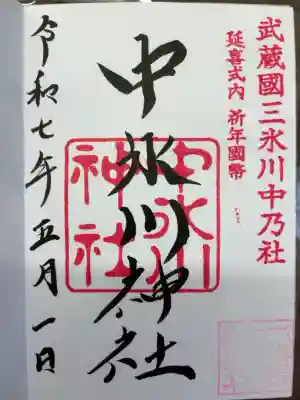 武蔵國三氷川中乃社
延喜式内 祈年國幣
中氷川神社
中氷川神社
令和七年五月一日